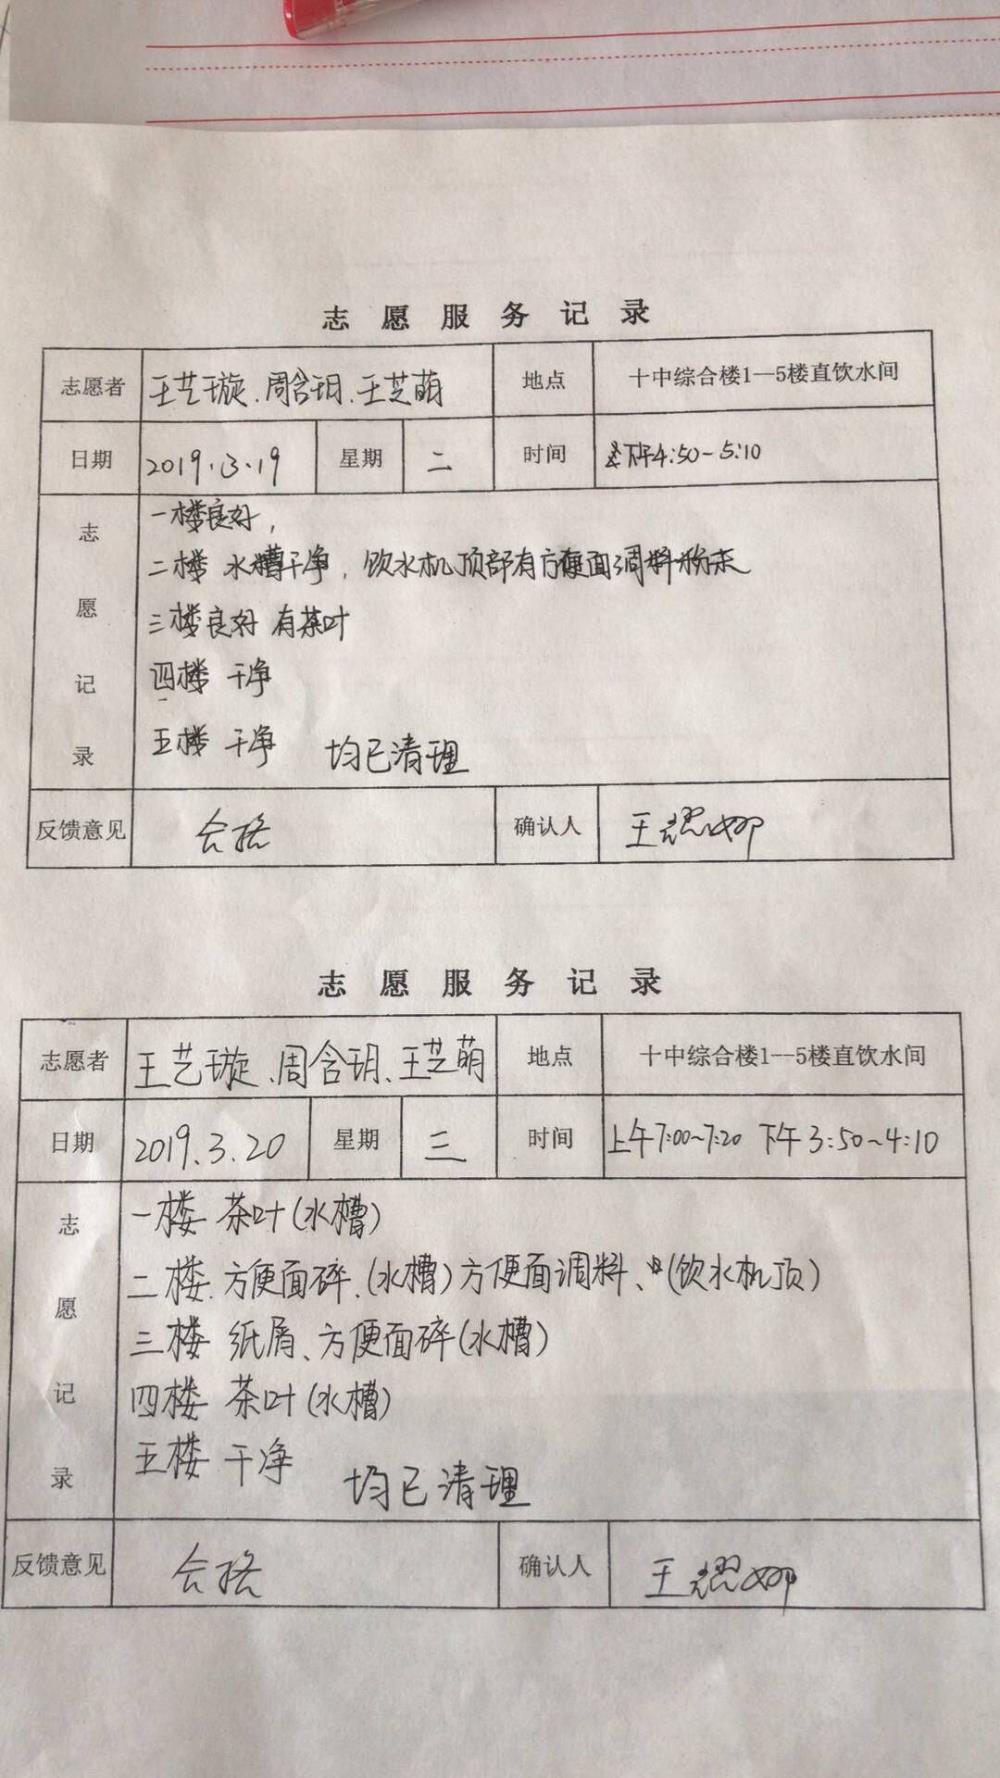 志愿服务记录
志愿者 王艺璇、周含玥、王芝萌 地点 十中综合楼1—5楼直饮水间
日期 2019.3.19 星期 二 时间 下午4:50~5:10
志愿记录
一楼良好,
二楼 水槽干净,饮水机顶部有方便面调料粉末
三楼良好 有茶叶
四楼 干净
五楼 干净 均已清理
反馈意见 合格 确认人 王
志愿服务记录
志愿者 王艺璇、周含玥、王芝萌 地点 十中综合楼1—5楼直饮水间
日期 2019.3.20 星期 三 时间 上午7:00~7:20 下午3:50~4:10
志愿记录
一楼 茶叶(水槽)
二楼.方便面碎.(水槽)方便面调料、(饮水机顶)
三楼 纸屑、方便面碎(水槽)
四楼 茶叶(水槽)
五楼 干净 均已清理
反馈意见 合格 确认人 王